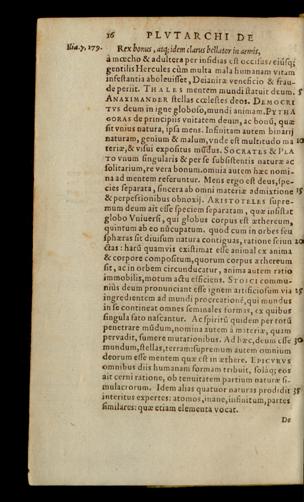 16 PLVTARCHI DE
Ilia.γ, 179. Rex bonus, atq; idem clarus bellator in armis,
à mœcho & adultera per insidias est occisus, eiúsq;
gentilis Hercules cùm multa mala humanam vitam
infestantia aboleuisset, Deianiræ veneficio & frau-
de periit. THALES mentem mundi statuit deum. 5
ANAXIMANDER stellas cœlestes deos. DEMOCRI
TVS deum in igne globoso, mundi animam. PYTHA
GORAS de principiis vnitatem deum, ac bonũ, quæ
sit vnius natura, ipsa mens. Infinitam autem binarij
naturam, genium & malum, vnde est multitudo ma 10
teriæ, & visui expositus mũdus. SOCRATES & PLA
TO vnum singularis & per se subsistentis naturæ ac
solitarium, re vera bonum. omnia autem hæc nomi-
na ad mentem referuntur. Mens ergo est deus, spe-
cies separata, sincera ab omni materiæ admixtione 15
& perpessionibus obnoxij. ARISTOTELES supre-
mum deum ait esse speciem separatam, quæ insistat
globo Vniuersi, qui globus corpus est æthereum,
quintum ab eo nũcupatum. quod cum in orbes seu
sphæras sit diuisum natura contiguas, ratione seiun 20
ctas: harũ quamvis existimat esse animal ex anima
& corpore compositum, quorum corpus æthereum
sit, ac in orbem circunducatur, anima autem ratio
immobilis, motum actu efficiens. STOICI commu-
niùs deum pronunciant esse ignem artificiosum via 25
ingredientem ad mundi procreationẽ, qui mundus
in se contineat omnes seminales formas, ex quibus
singula fato nascantur. Ac spiritũ quidem per totũ
penetrare mũdum, nomina autem à materiæ, quam
pervadit, sumere mutationibus. Ad hæc, deum esse 30
mundum, stellas, terram: supremum autem omnium
deorum esse mentem quæ est in æthere. EPICVRVS
omnibus diis humanam formam tribuit, solaq; eos
ait cerni ratione, ob tenuitatem partium naturæ si-
mulacrorum. Idem alias quatuor naturas prodidit 35
interitus expertes: atomos, inane, infinitum, partes
similares: quæ etiam elementa vocat.
De